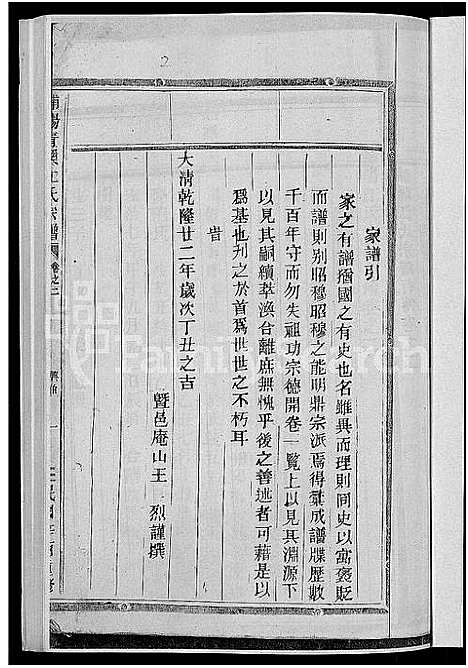 家譜引
家之有譜猶國之有史也名雖異而理則同史以寓褒貶
而譜則别昭穆昭穆之能明鼎宗派焉得彙成譜牒歷數
千百年守而勿失祖功宗德開卷一覽上以見其淵源下
以見其嗣續萃渙合離庶無愧乎後之善述者可藉是以
爲基也刋之於首爲世世之不朽耳
旹
大清乾隆廿二年歲次丁丑之吉
暨邑庵山王 烈謹撰
氏宗譜 卷之二
一
FamilySearch